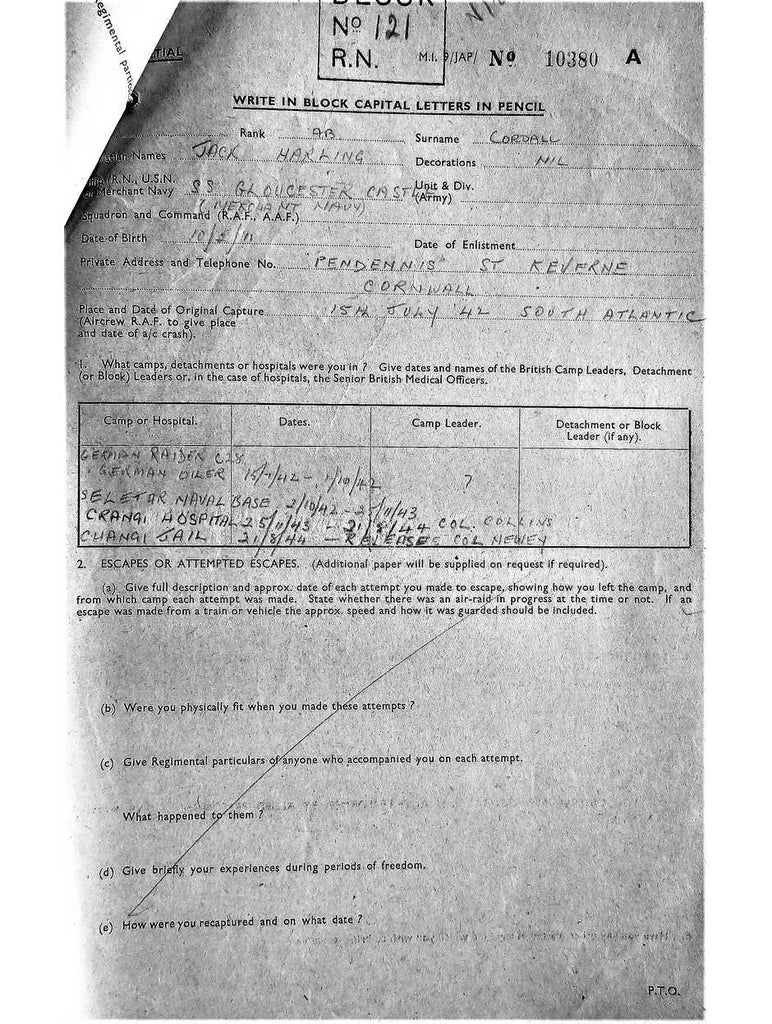 BLOCK
Nº 121
R.N.
egimental partic
TIAL
M.I. 9/JAP/ Nº 10380 A
WRITE IN BLOCK CAPITAL LETTERS IN PENCIL
Rank AB Surname CORDALL
Names JACK HARLING Decorations NIL
R.N., U.S.N. or Merchant Navy SS GLOUCESTER CASTLE Unit & Div. (Army)
(MERCHANT NAVY)
Squadron and Command (R.A.F., A.A.F.)
Date of Birth 10/5/11 Date of Enlistment
Private Address and Telephone No. "PENDENNIS" ST KEVERNE
CORNWALL
Place and Date of Original Capture 15TH JULY '42 SOUTH ATLANTIC
(Aircrew R.A.F. to give place
and date of a/c crash).
1. What camps, detachments or hospitals were you in ? Give dates and names of the British Camp Leaders, Detachment
(or Block) Leaders or, in the case of hospitals, the Senior British Medical Officers.
Camp or Hospital. Dates. Camp Leader. Detachment or Block
Leader (if any).
GERMAN RAIDER C28
GERMAN OILER 15/7/42 - 1/10/42 ?
SELETAR NAVAL BASE 2/10/42 - 25/11/43
CRANGI HOSPITAL 25/11/43 - 21/8/44 COL. COLLINS
CHANGI JAIL 21/8/44 - RELEASES COL NEWEY
2. ESCAPES OR ATTEMPTED ESCAPES. (Additional paper will be supplied on request if required).
(a) Give full description and approx. date of each attempt you made to escape, showing how you left the camp, and
from which camp each attempt was made. State whether there was an air-raid in progress at the time or not. If an
escape was made from a train or vehicle the approx. speed and how it was guarded should be included.
(b) Were you physically fit when you made these attempts ?
(c) Give Regimental particulars of anyone who accompanied you on each attempt.
What happened to them ?
(d) Give briefly your experiences during periods of freedom.
(e) How were you recaptured and on what date ?
P.T.O.